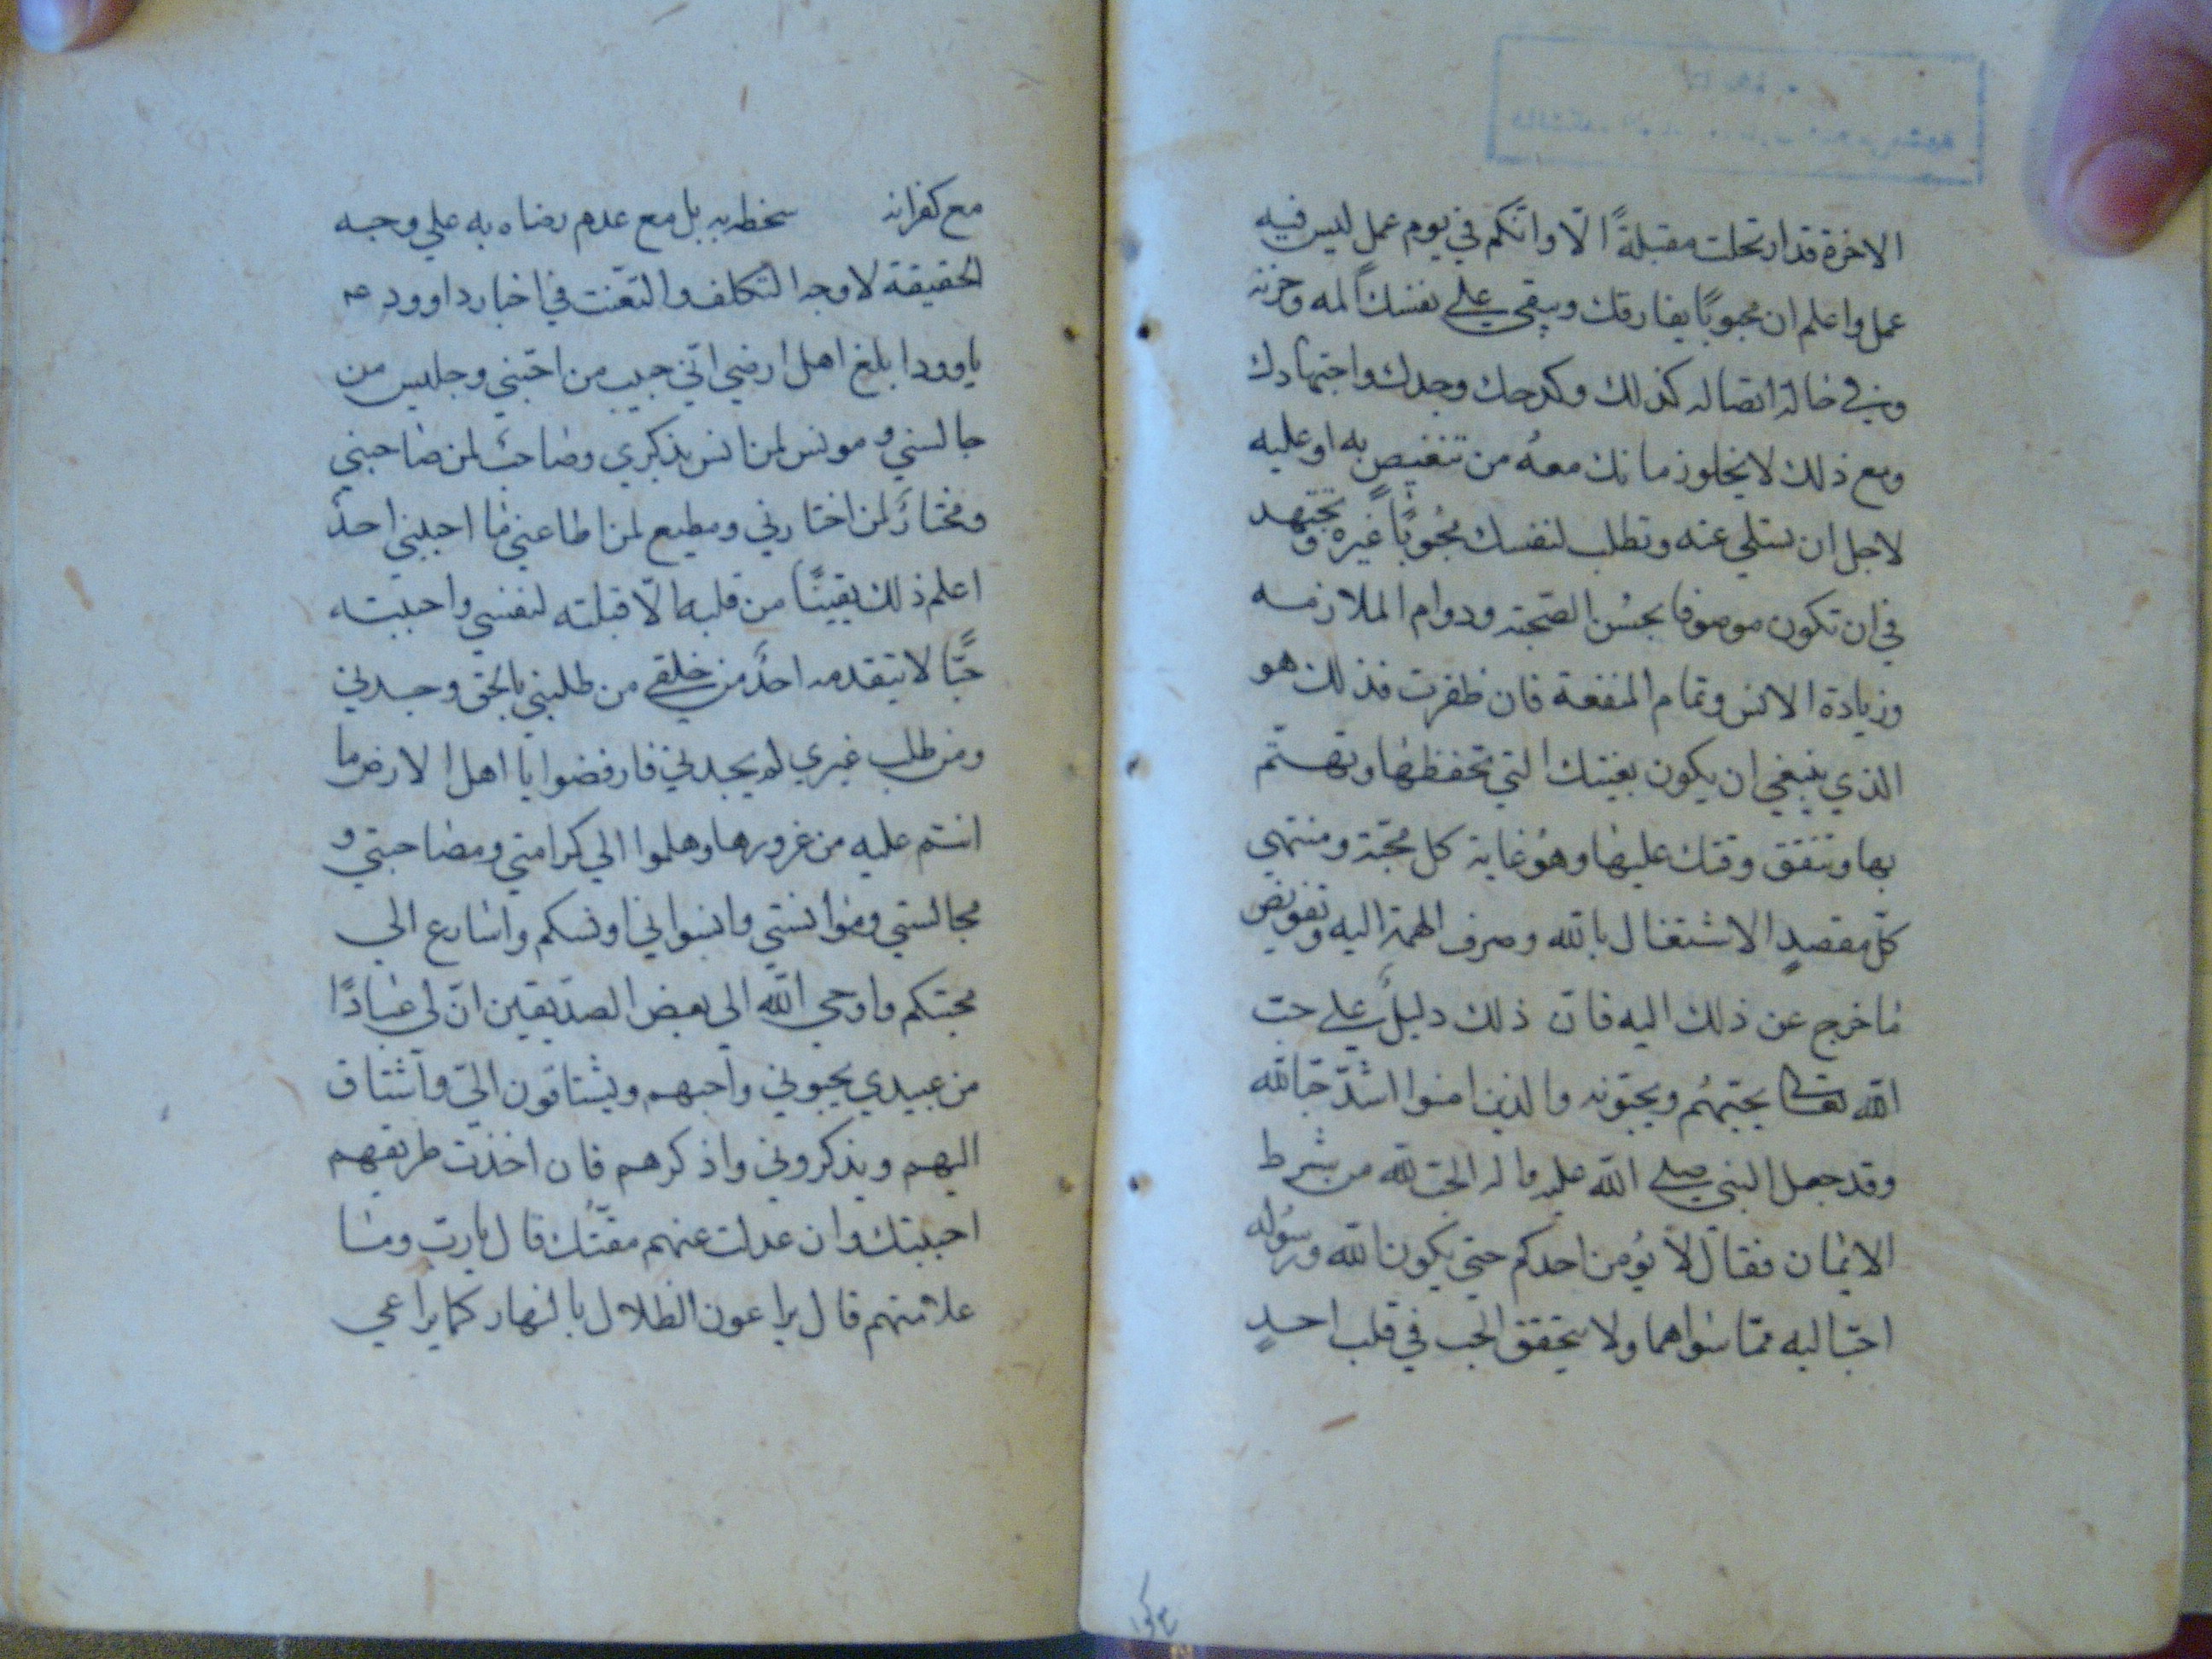 الاخرة قد ارتحلت مقبلةً الّا وانّكم في يوم عمل ليس فيه
عمل واعلم ان محبوبًا يفارقك ويبقي علي نفسك المه وحزنه
في حالة اتصاله كذلك وكدحك وجدك واجتهادك
ومع ذلك لا يخلو زمانك معهُ من تنغيصٍ به او عليه
لاجل ان تسلي عنه وتطلب لنفسك محبُوبًا غيره وتجتهد
في ان تكون موصوفا بحسُن الصّحبة ودوام الملازمه
وزيادة الانس وتمام المنفعة فان ظفرت فذلك هو
الذي ينبغي ان يكون بغيتك التي تحفظها وتهتّم
بها وتنفق وقتك عليها وهوُ غاية كل محبّة ومنتهي
كلّ مقصدٍ الاشتغال بالله وصرف الهمة اليه وتفويض
ما خرج عن ذلك اليه فانّ ذلك دليلٌ علي حبّ
الله تعالي يحبّهُم ويحبّونه والذين امنوا اشدّ حبّا لله
وقد جعل النبي صلي الله عليه واله الحبّ لله من شرط
الايمان فقال لا يوُمن احدكم حتي يكون الله ورسُوله
احبّ اليه ممّا سواهما ولا يتحقق الحب في قلب احدٍ
مع كفرانه سخطه به بل مع عدم رضاه به علي وجه
الحقيقة لا وجه التكلف والتعّنت في اخبار داوود عم
ياوودا بلغ اهل ارضي انّي حبيب من احبّني وجليس من
جالسني و مونس لمن انس بذكري وصاحبٌ لمن صاحبني
ومختارٌ لمن اختارني ومطيع لمن اطاعني ما احبني احدٌ
اعلم ذلك يقينًا من قلبه الّا قبلته لنفسي واحببته
حبًّا لا يتقدمه احدٌ من خلقي من طلبني بالحق وجدني
ومن طلب غيري لم يجدني فارفضوا يا اهل الارض ما
انتم عليه من غرورها وهلموا الي كرامتي ومصاحبتي و
مجالستي وموانستي وانسوابي اونسكم واسارع الي
محبتكم واوحي الله الي بعض الصدّيقين انّ لي عبادًا
من عبيدي يحبوني واحبهم ويشتاقون اليّ واشتاق
اليهم ويذكروني واذكرهم فان اخذت طريقهم
احببتك وان عدلت عنهم مقتُّك قال يا ربّ وما
علامتهم قال يراعون الظلال بالنهار كما يراعي